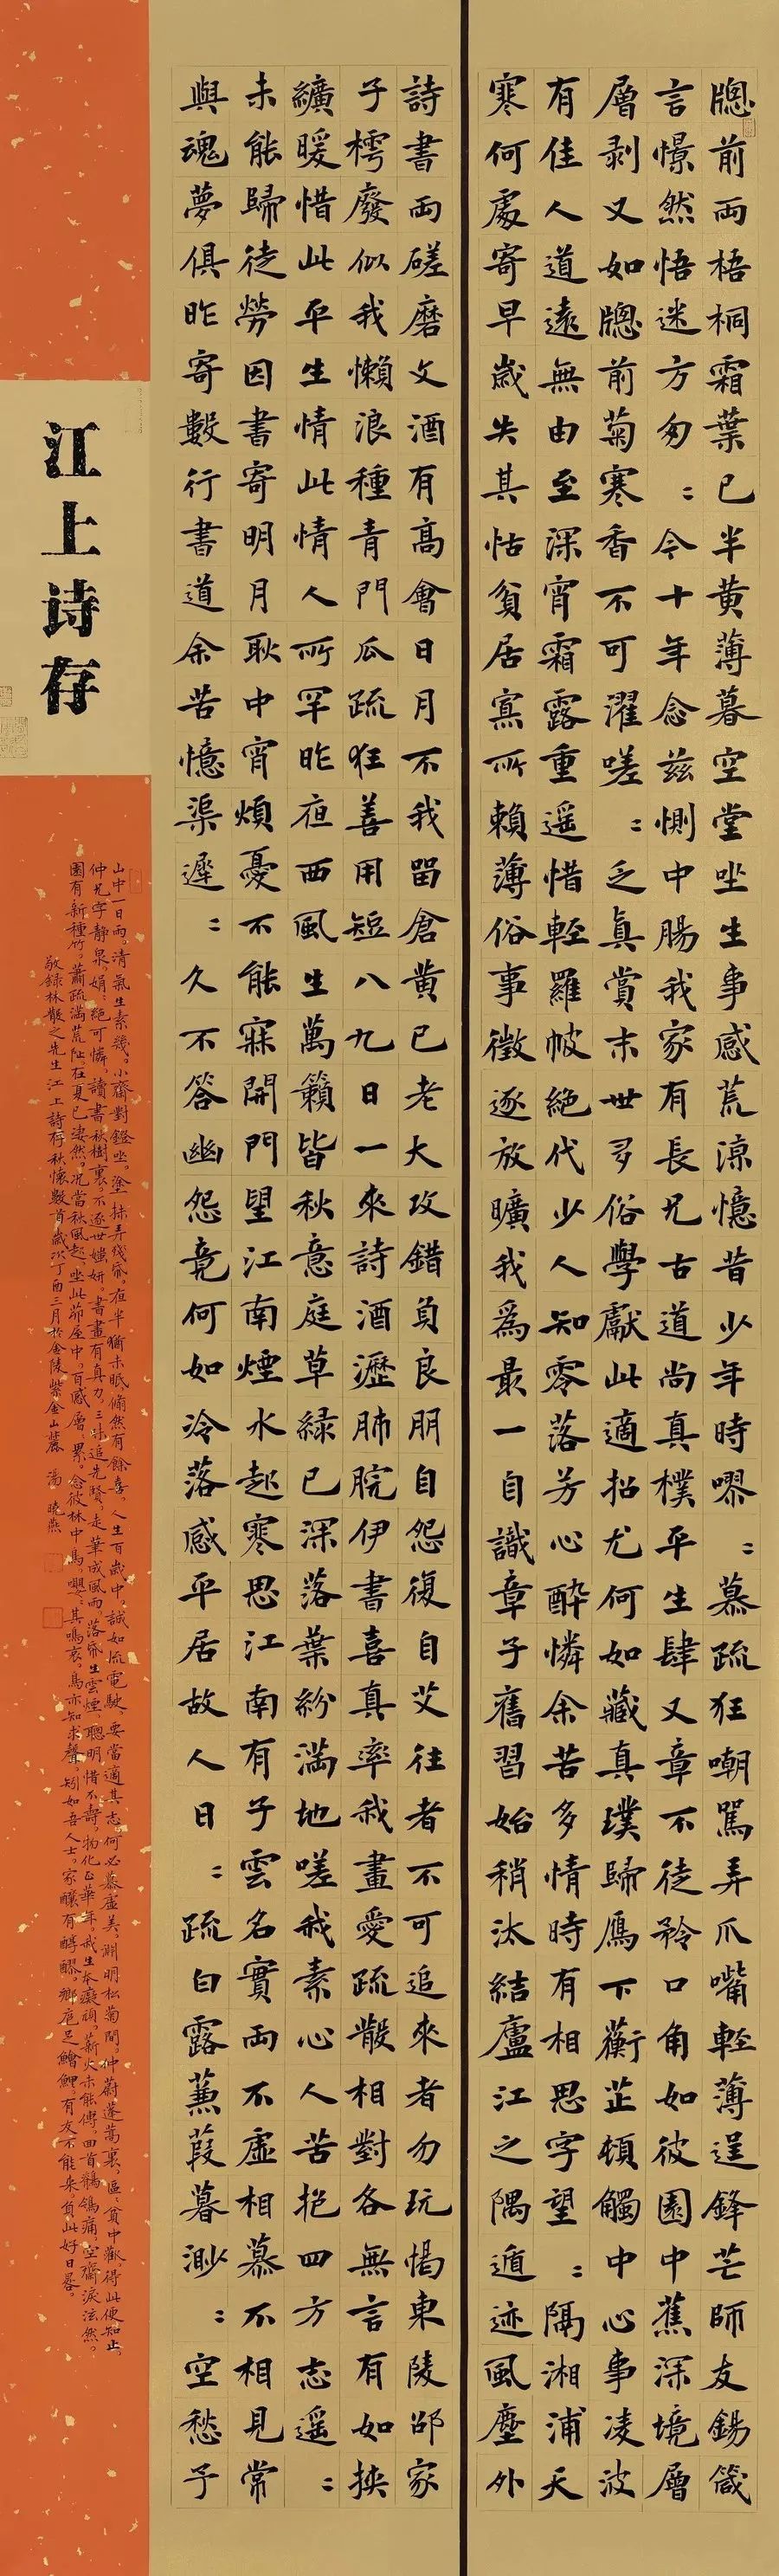 牕前兩梧桐霜葉已半黃薄暮空堂坐生事感荒涼憶昔少年時嘐〻慕疏狂嘲罵弄爪嘴輕薄逞鋒芒師友錫箴
言憬然悟迷方匆〻今十年念茲惻中腸我家有長兄古道尚真樸平生肆文章不徒矜口角如彼園中蕉深境層
層剥又如牕前菊寒香不可濯嗟〻乏真賞末世多俗學獻此適招尤何如藏真璞歸鴈下蘅芷頓觸中心事凌波
有佳人道遠無由至深宵霜露重遥惜輕羅帔絕代少人知零落芳心醉憐余苦多情時有相思字望〻隔湘浦天
寒何處寄早歲失其怙貧居寡所賴薄俗事徵逐放曠我為最一自識章子舊習始稍汰結廬江之隅遁迹風塵外
詩書兩磋磨文酒有高會日月不我留倉黃已老大攻錯負良朋自怨復自艾往者不可追來者勿玩愒東陵邵家
子樗廢似我懶浪種青門瓜疏狂善用短八九日一來詩酒瀝肺脘伊書喜真率我畫愛疏散相對各無言有如挾
纊暖惜此平生情此情人所罕昨夜西風生萬籟皆秋意庭草綠已深落葉紛滿地嗟我素心人苦抱四方志遥〻
未能歸徒勞因書寄明月耿中宵煩憂不能寐開門望江南煙水起寒思江南有子雲名實兩不虛相慕不相見常
與魂夢俱昨寄數行書道余苦憶渠遲〻久不答幽怨竟何如冷落感平居故人日〻疏白露蒹葭暮渺〻空愁予
江上诗存
山中一日雨。清氣生素幾。小齋對鐙坐。塗抹弄殘紙。夜半猶未眠。翛然有餘喜。人生百歲中。誠如流電駛。要當適其志。何必慕虛美。淵明松菊間。仲蔚蓬蒿裏。區〻貧中歡。得此便知止。
仲兄字靜泉。娟〻絕可憐。讀書秋樹裏。不逐世媸妍。書畫有真力。三味追先賢。走筆成風雨。落紙生雲煙。聰明惜不壽。物化正華年。我生本癡頑。薪火未能傳。回首鶺鴒痛。空齋淚泫然。
園有新種竹。蕭疏滿荒阯。在夏已淒然。況當秋風起。坐此茆屋中。百感層〻累。念彼林中鳥。嚶〻其鳴哀。鳥亦知求聲。矧如吾人士。家釀有醇醪。鄉庖足鱠鯉。有友不能來。負此好日晷。
敬録林散之先生江上詩存秋懷數首歲次丁酉三月於金陵紫金山麓 湯曉燕